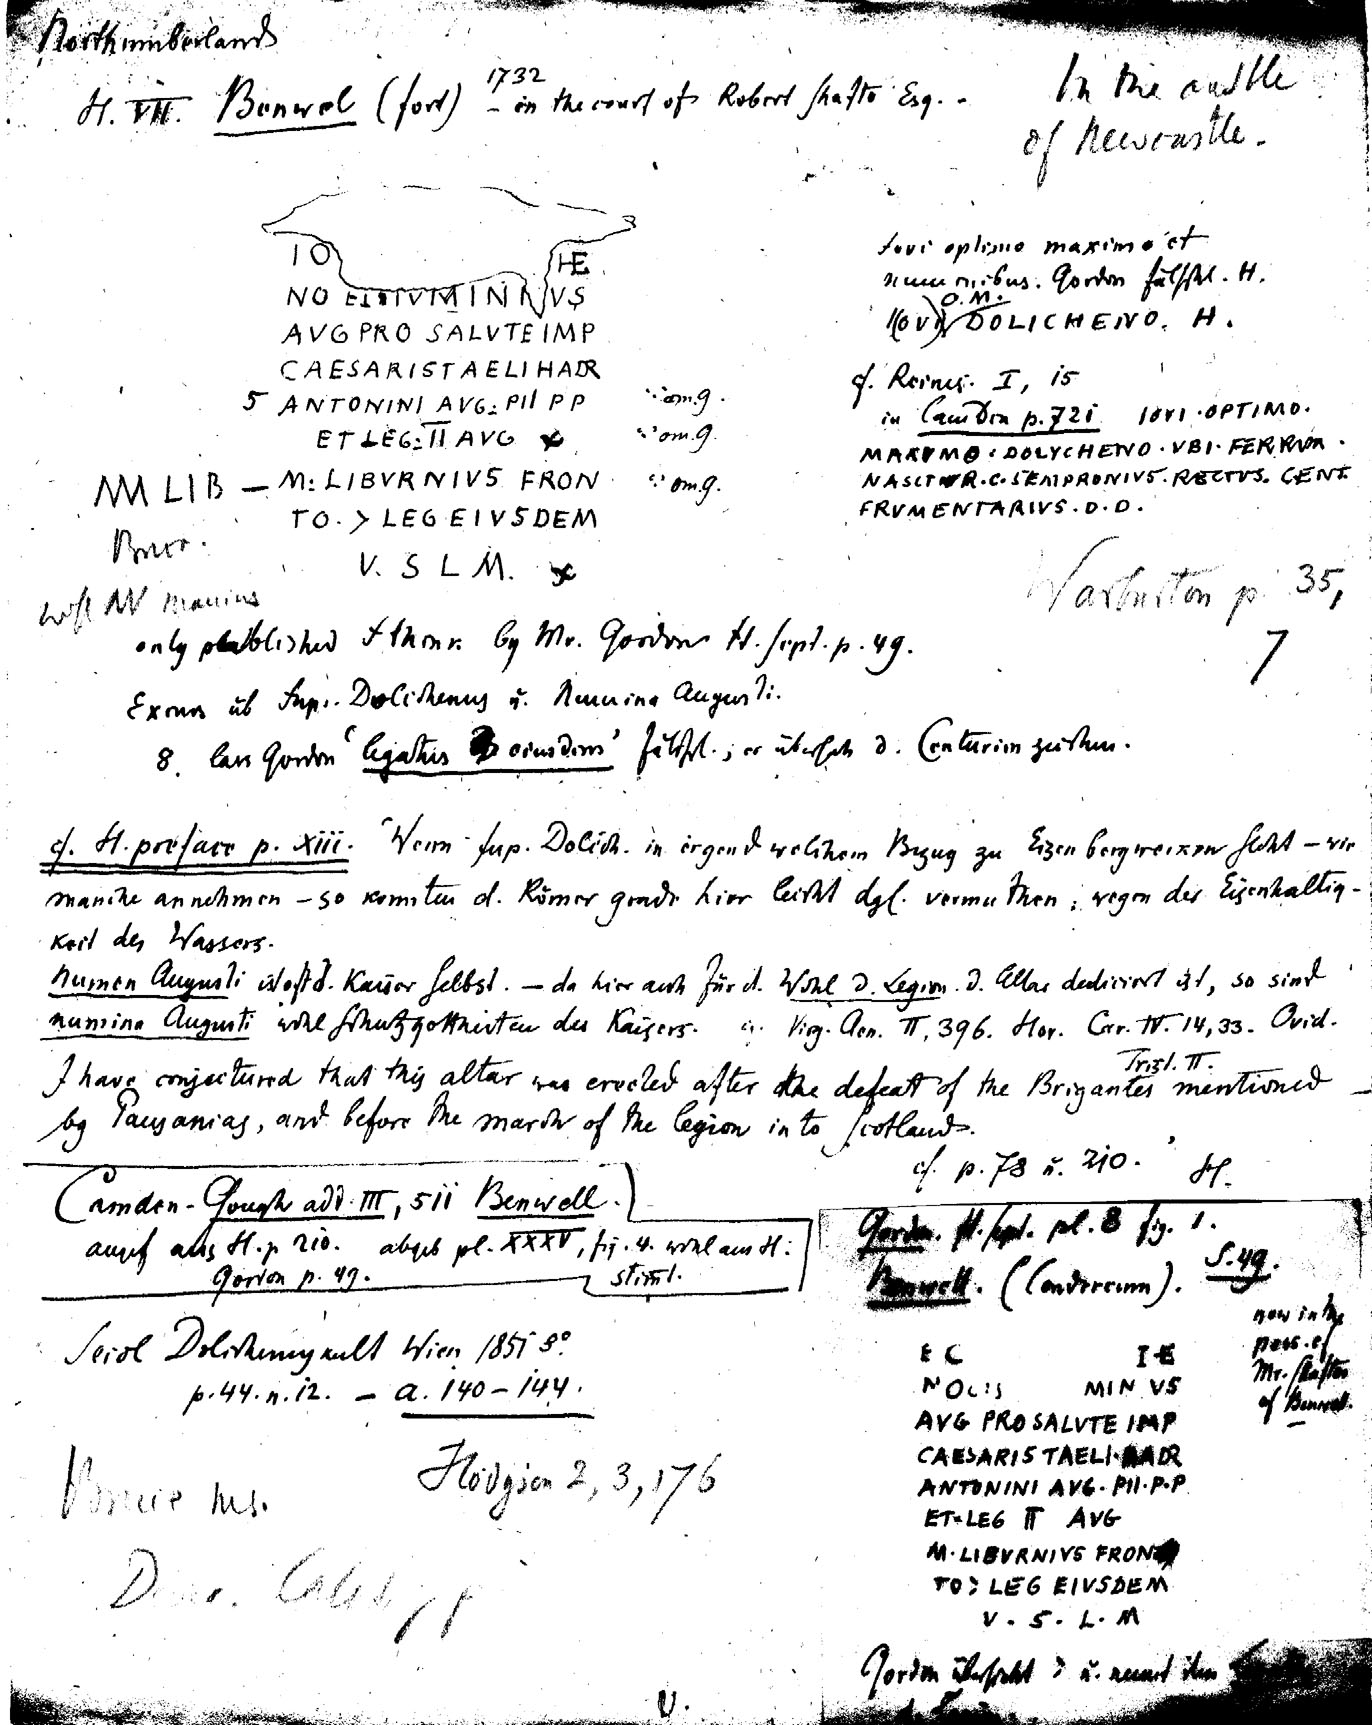 Northumberland
H. VII. Benwel (fort) 1732 - in the court of Robert Shafto Esq. -
In the castle
of Newcastle.
IO HE
NO ETNVMINIVS
AVG PRO SALVTE IMP
CAESARIS T AELI HADR
5 ANTONINI AVG: PII PP om. g.
ET LEG: II AVG om. g.
M LIB — M: LIBVRNIVS FRON om. g.
TO. > LEG EIVSDEM
Bruce.
V. S L M.
Iovi optimo maximo et
numinibus. Gordon fälschl. H.
O. M.
I(ovi) DOLICHENO. H.
cf. Reines. I, 15
in Camden p. 721 IOVI · OPTIMO ·
MAXVMO · DOLYCHENO · VBI · FERRVM ·
NASCITVR · C · SEMPRONIVS · RECTVS · CENT
FRVMENTARIVS · D · D ·
Warburton p. 35,
7
only published by Mr. Gordon It. sept. p. 49.
Dolichenus u. Numina Augusti.
8. las Gordon 'legatus eiusdem' fälschl.; er übersah d. Centurionzeichen.
cf. H. preface p. XIII. Wenn Jup. Dolich. in irgend welchem Bezug zu Eisenbergwerken steht – wie
manche annehmen – so konnten d. Römer grade hier leicht dgl. vermuthen, wegen der Eisenhaltig-
keit des Wassers.
Numen Augusti ist oft d. Kaiser selbst. — da hier auch für d. Wohl d. Legion d. Altar dediciert ist, so sind
numina Augusti wohl Schutzgottheiten des Kaisers. Virg. Aen. II, 396. Hor. Car. IV. 14, 33. Ovid.
Trist. II.
I have conjectured that this altar was erected after the defeat of the Brigantes mentioned
by Pausanias, and before the march of the legion into Scotland.
cf. p. 78 u. 210. H.
Camden-Gough add. III, 511 Benwell.
aus H. p. 210. abgeb. pl. XXXV, fig. 4. wohl aus H.
Gordon p. 49. stimt.
Seidl Dolichenuskult Wien 1851 8°
p. 44. n. 12. — a. 140–144.
Bruce ms.
Hodgson 2, 3, 176
Gordon. It. sept. pl. 8 fig. 1.
Benwell. (Condercum). S. 49.
now in the
poss. of
Mr. Shafto
of Benwell.
EC IE
NOCIS MIN VS
AVG PRO SALVTE IMP
CAESARIS T AELI HADR
ANTONINI AVG · PII · P · P
ET LEG II AVG
M · LIBVRNIVS FRON
TO > LEG EIVSDEM
V · S · L · M
Gordon übersieht > u. nennt ihn